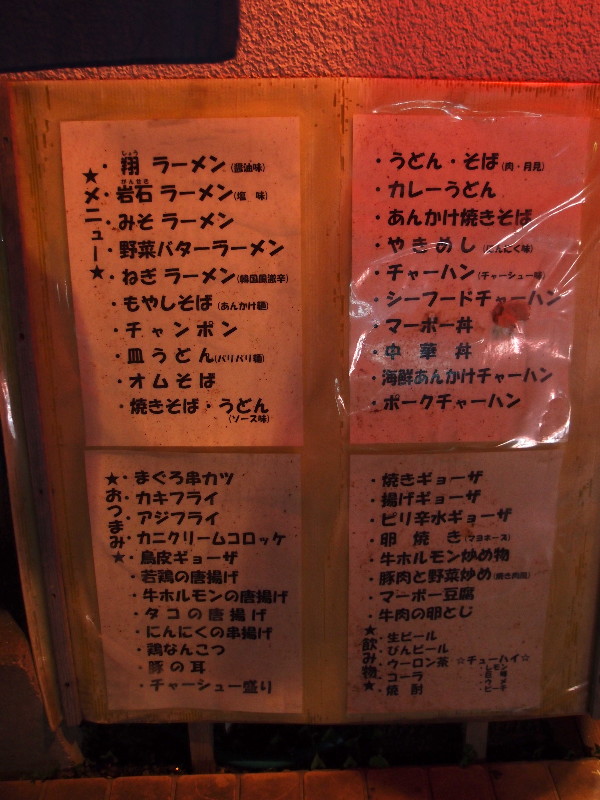 ★メニュー★
しょう
・翔 ラーメン(醤油味)
がんせき
・岩石 ラーメン(塩 味)
・みそ ラーメン
・野菜バターラーメン
・ねぎ ラーメン(韓国風激辛)
・もやしそば(あんかけ麺)
・チャンポン
・皿うどん(パリパリ麺)
・オムそば
・焼きそば・うどん
(ソース味)
・うどん・そば(肉・月見)
・カレーうどん
・あんかけ焼きそば
・やきめし(にんにく味)
・チャーハン(チャーシュー味)
・シーフードチャーハン
・マーボー丼
・中華丼
・海鮮あんかけチャーハン
・ポークチャーハン
★おつまみ★
・まぐろ串カツ
・カキフライ
・アジフライ
・カニクリームコロッケ
・鳥皮ギョーザ
・若鶏の唐揚げ
・牛ホルモンの唐揚げ
・タコの唐揚げ
・にんにくの串揚げ
・鶏なんこつ
・豚の耳
・チャーシュー盛り
・焼きギョーザ
・揚げギョーザ
・ピリ辛水ギョーザ
・卵焼き(マヨネーズ)
・牛ホルモン炒め物
・豚肉と野菜炒め(焼き肉風)
・マーボー豆腐
・牛肉の卵とじ
★飲み物★
・生ビール
・びんビール
・ウーロン茶
・コーラ
・焼酎
☆チューハイ☆
・レモン
・ウメ
・ピーチ